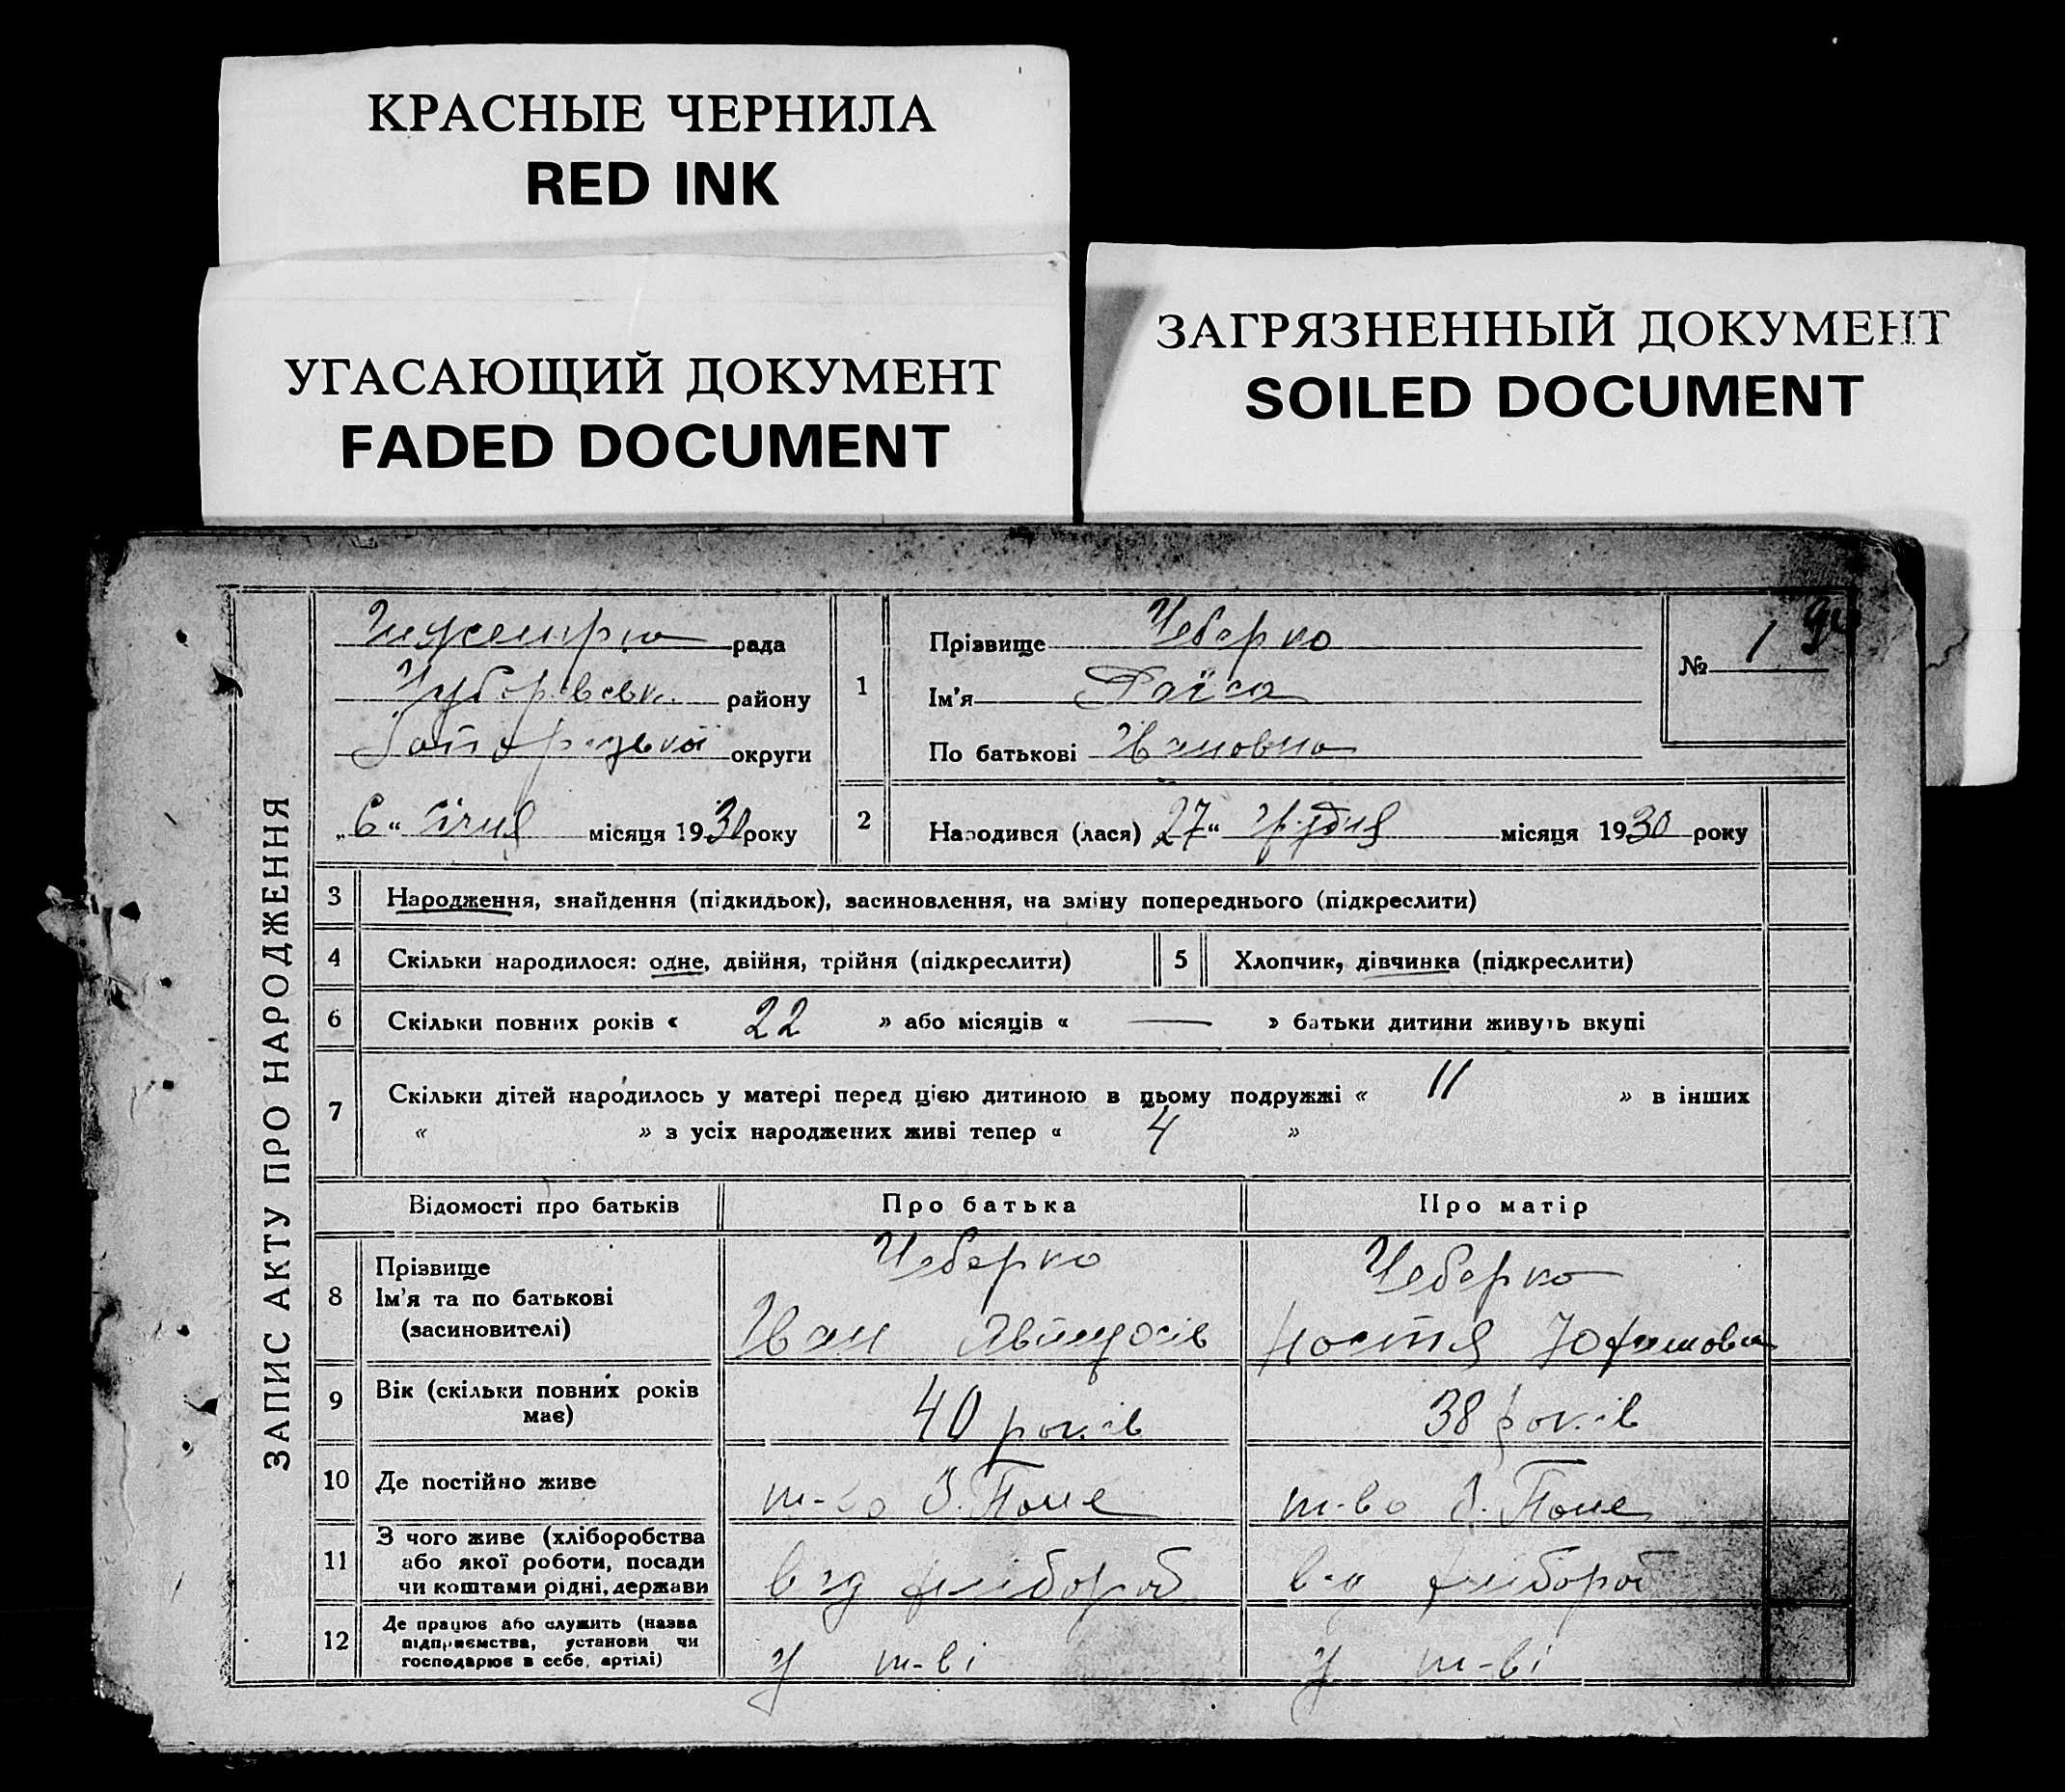 КРАСНЫЕ ЧЕРНИЛА
RED INK
УГАСАЮЩИЙ ДОКУМЕНТ
FADED DOCUMENT
ЗАГРЯЗНЕННЫЙ ДОКУМЕНТ
SOILED DOCUMENT
ЗАПИС АКТУ ПРО НАРОДЖЕННЯ
рада
району
округи
„6“ січня місяця 1930 року
1
Прізвище Чеберко
Ім'я Раїса
По батькові Івановна
№ 1
2
Народився (лася) 27“ грудня місяця 1930 року
3 Народження, знайдення (підкидьок), засиновлення, на зміну попереднього (підкреслити)
4 Скільки народилося: одне, двійня, трійня (підкреслити) 5 Хлопчик, дівчинка (підкреслити)
6 Скільки повних років « 22 » або місяців « — » батьки дитини живуть вкупі
7 Скільки дітей народилось у матері перед цією дитиною в цьому подружжі « 11 » в інших
« » з усіх народжених живі тепер « 4 »
Відомості про батьків Про батька Про матір
8 Прізвище
Ім'я та по батькові
(засиновителі)
Чеберко
Іван
Чеберко
Настя Юхимовна
9 Вік (скільки повних років
має)
40 років 38 років
10 Де постійно живе т-во З. Поле т-во З. Поле
11 З чого живе (хліборобства
або якої роботи, посади
чи коштами рідні, держави
від хлібороб від хлібороб
12 Де працює або служить (назва
підприємства, установи чи
господарює в себе, артілі)
у т-ві у т-ві